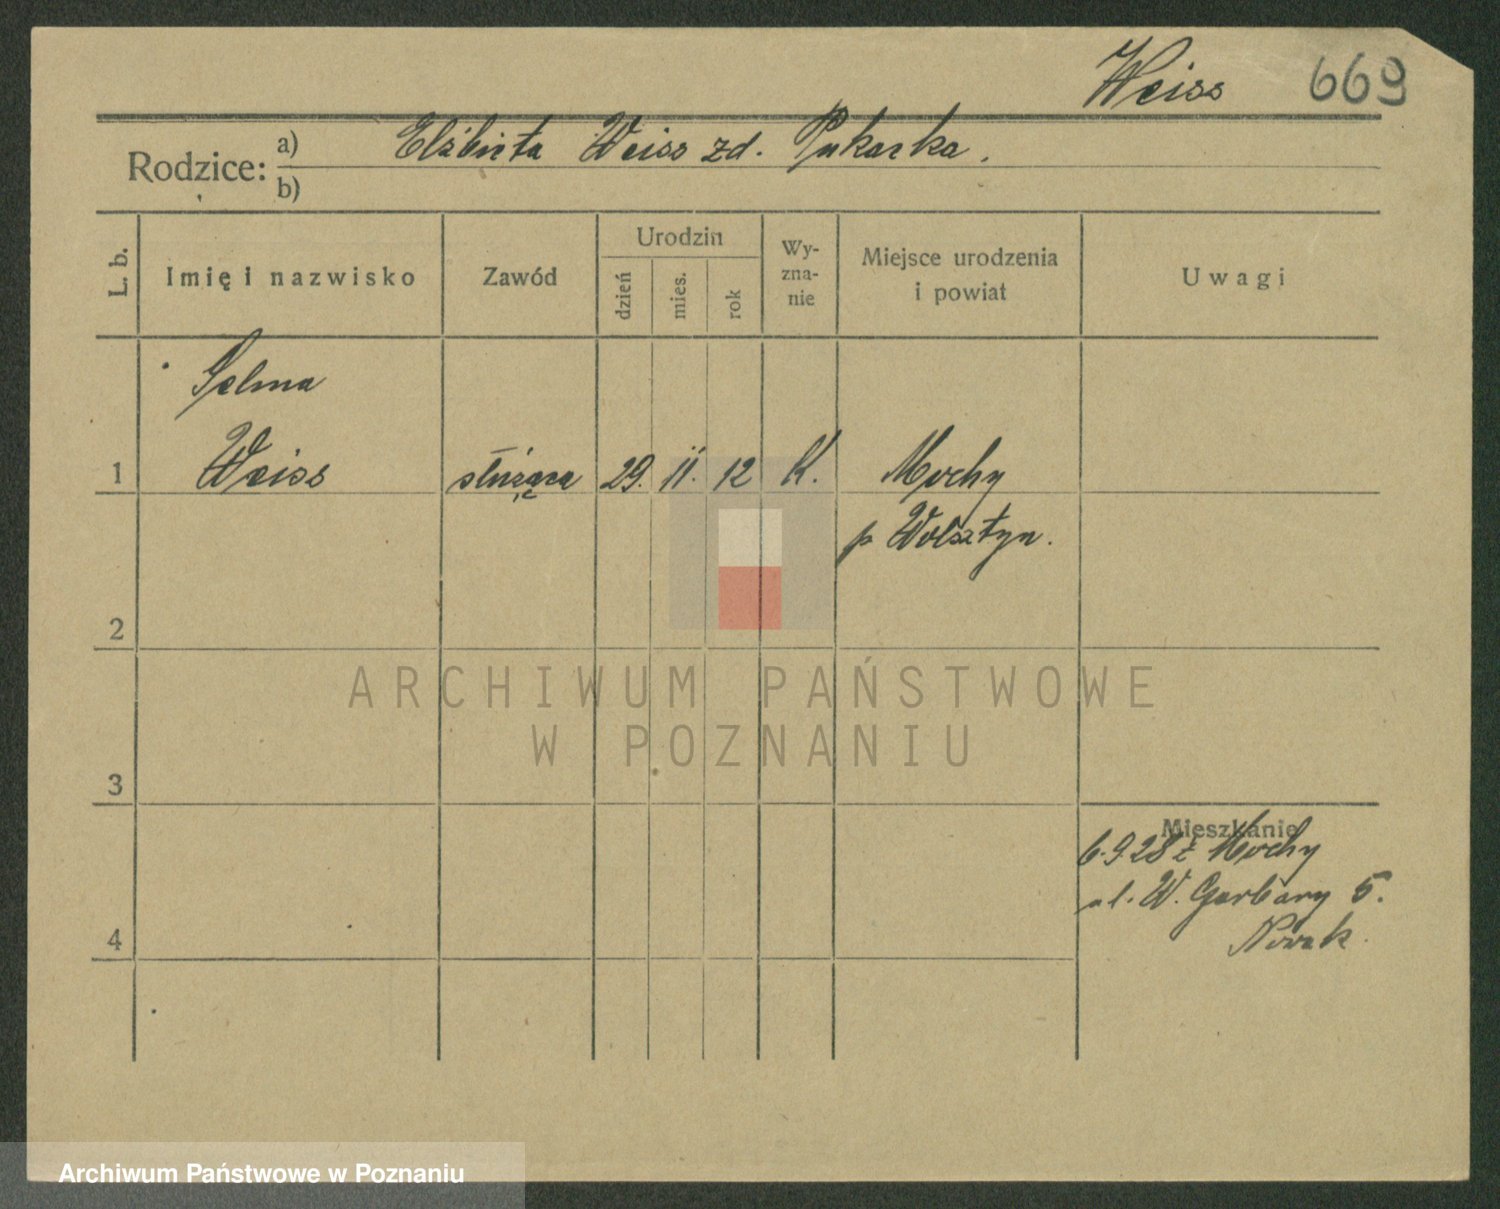 Weiss 669
Rodzice: a) Elżbieta Weiss zd. Pukacka.
b)
L. b. Imię i nazwisko Zawód Urodzin dzień mies. rok Wy-zna-nie Miejsce urodzenia i powiat Uwagi
Selma
1 Weiss służąca 29. II. 12 K. Mochy
p Wolsztyn.
2
ARCHIWUM PAŃSTWOWE
W POZNANIU
3
Mieszkanie
6.9 28 z Mochy
ul. W. Garbary 5.
4 Nowak.
Archiwum Państwowe w Poznaniu